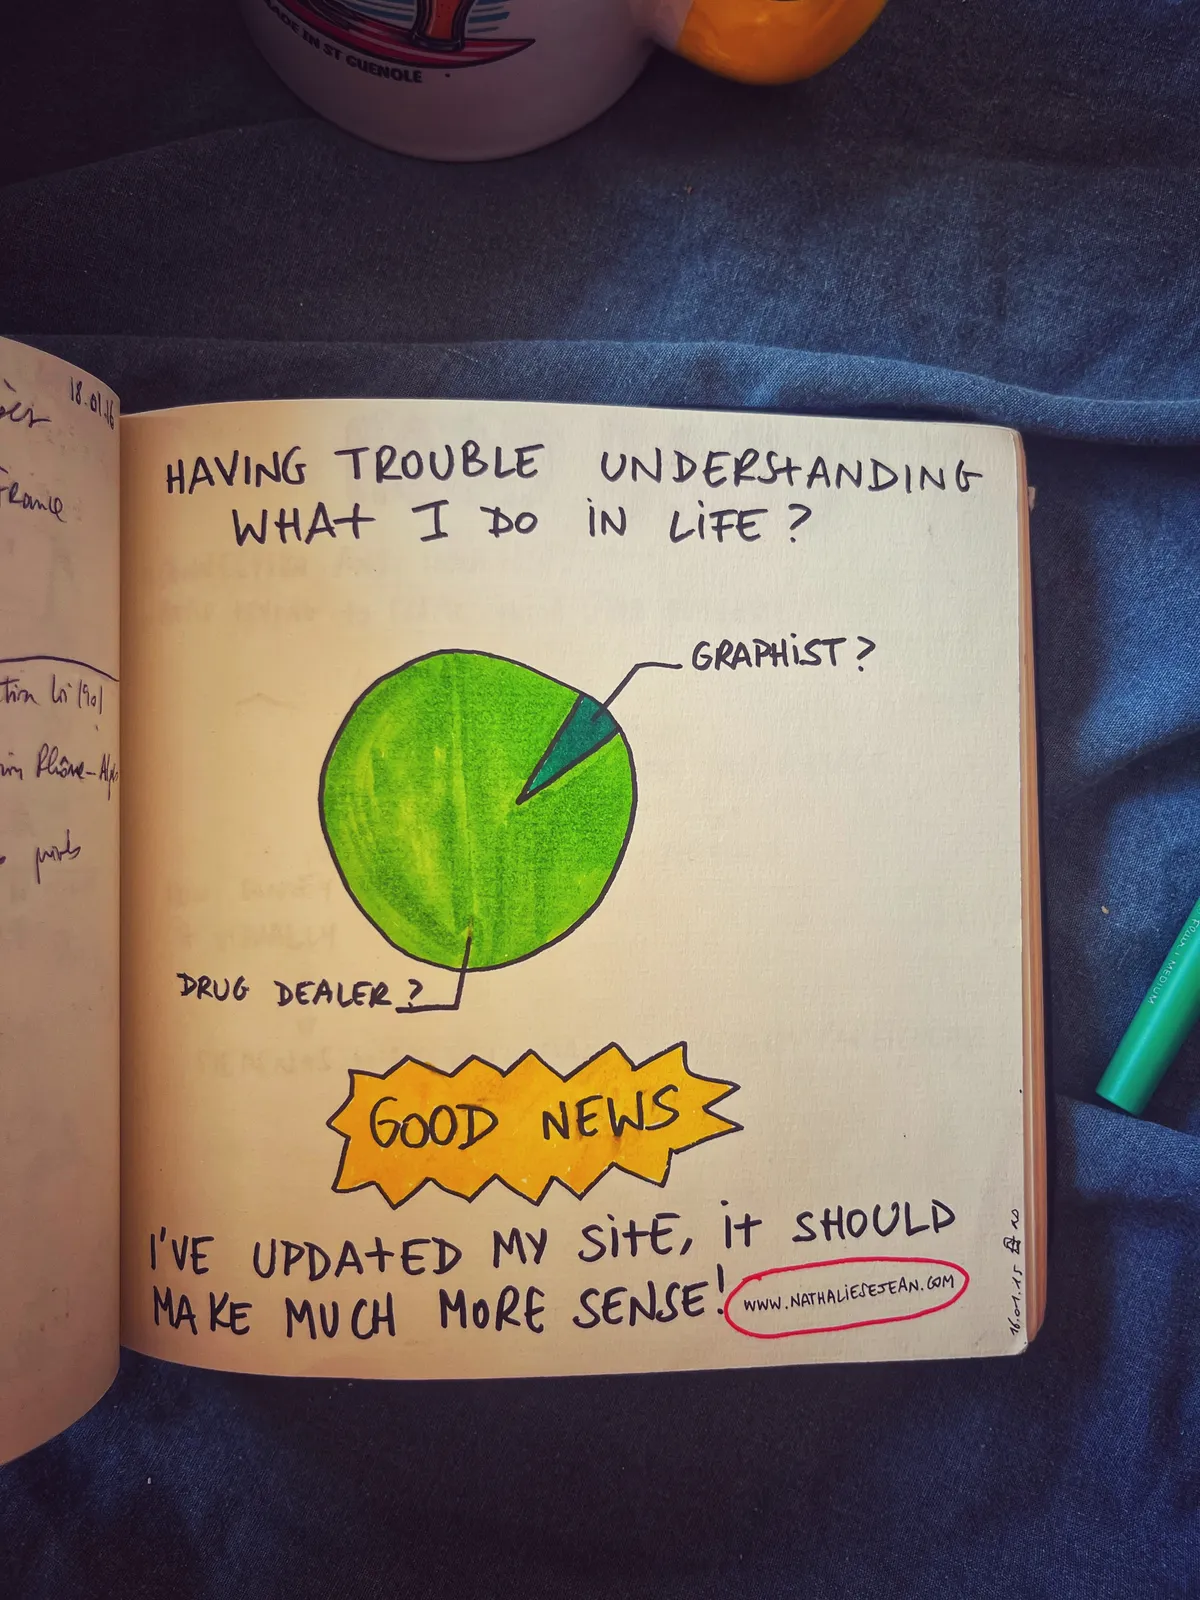 MADE IN ST GUENOLE
18.01.16
France
Rhône-Alp
points
HAVING TROUBLE UNDERSTANDING
WHAT I DO IN LIFE?
GRAPHIST?
DRUG DEALER?
GOOD NEWS
I'VE UPDATED MY SITE, IT SHOULD
MAKE MUCH MORE SENSE!
WWW.NATHALIESEJEAN.COM
16.01.15
MEDIUM